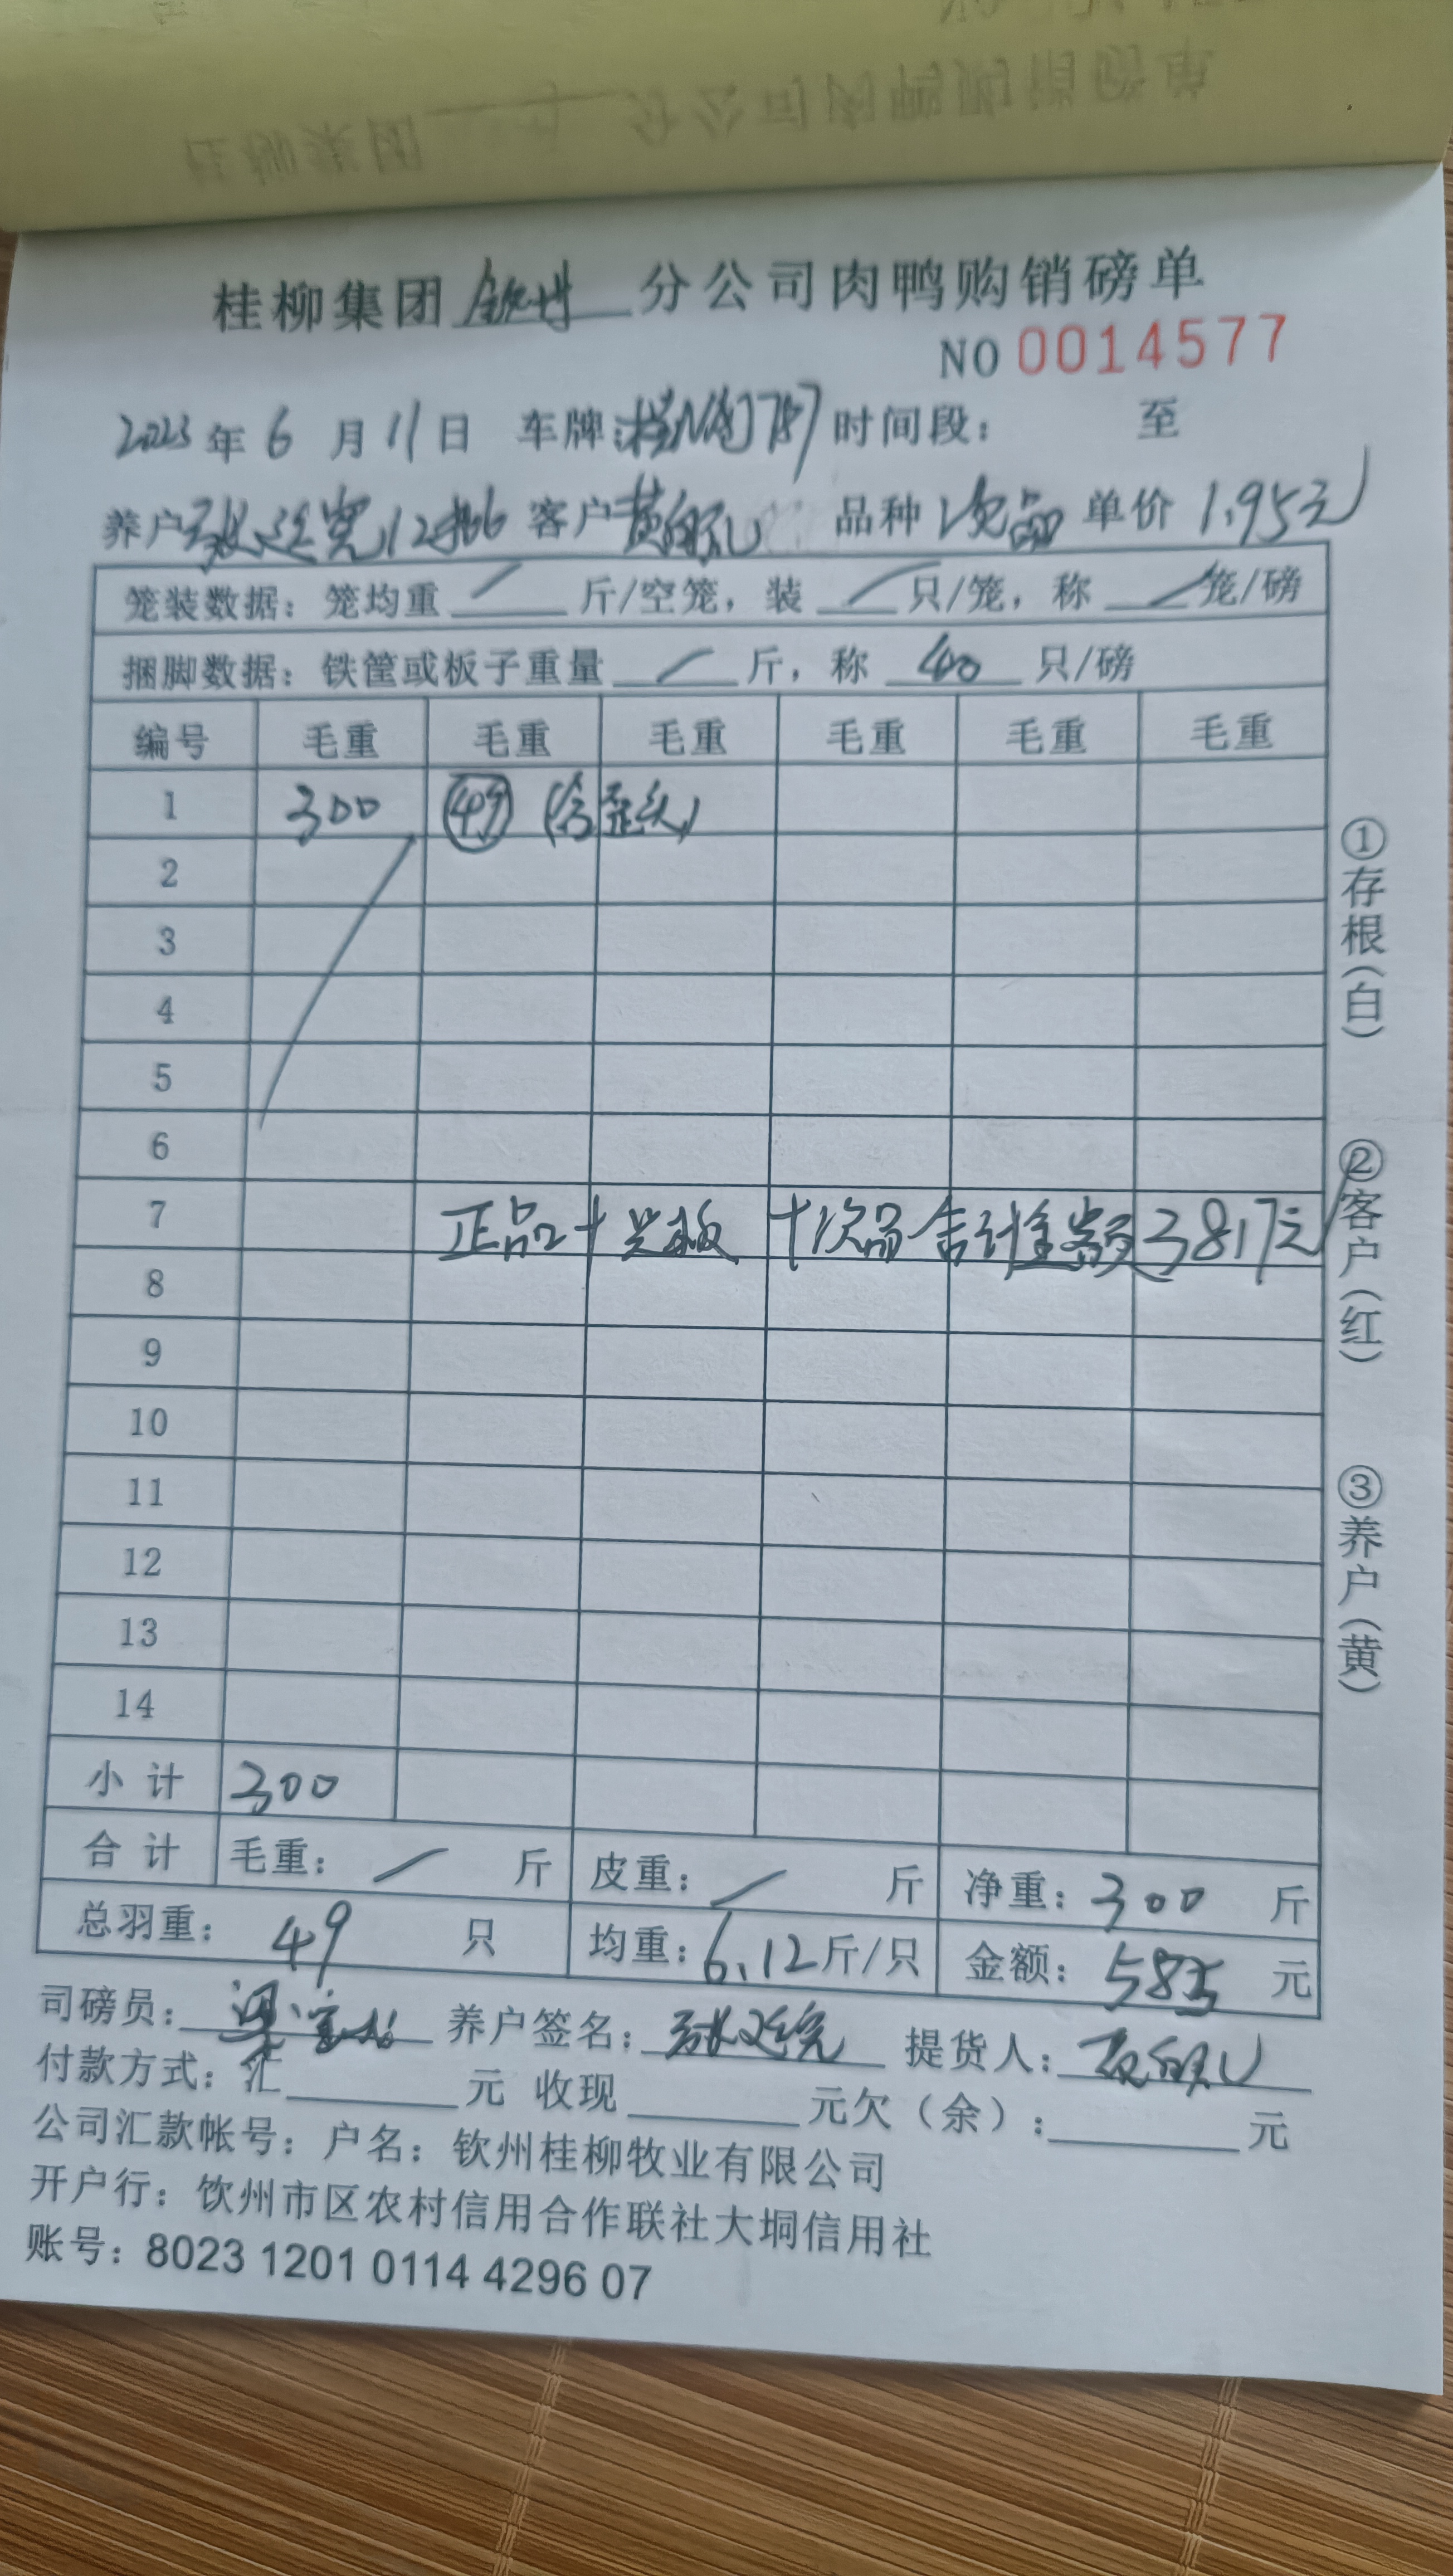 桂柳集团 钦州 分公司肉鸭购销磅单
NO 0014577
2023 年 6 月 11 日 车牌: 787 时间段: 至
养户 张廷宽 12批 客户 黄 品种 次品 单价 1.95元
笼装数据: 笼均重 / 斤/空笼, 装 / 只/笼, 称 / 笼/磅
捆脚数据: 铁筐或板子重量 / 斤, 称 40 只/磅
编号 毛重 毛重 毛重 毛重 毛重 毛重
1 300 49 (含歪头)
2
3
4
5
6
7 正品+ 板+次品合计金额3817元
8
9
10
11
12
13
14
小计 300
合计 毛重: / 斤 皮重: / 斤 净重: 300 斤
总羽重: 49 只 均重: 6.12 斤/只 金额: 585 元
司磅员: 梁 养户签名: 张廷宽 提货人:
付款方式: 汇 元 收现 元欠(余): 元
公司汇款帐号: 户名: 钦州桂柳牧业有限公司
开户行: 钦州市区农村信用合作联社大垌信用社
账号: 8023 1201 0114 4296 07
①存根(白)
②客户(红)
③养户(黄)